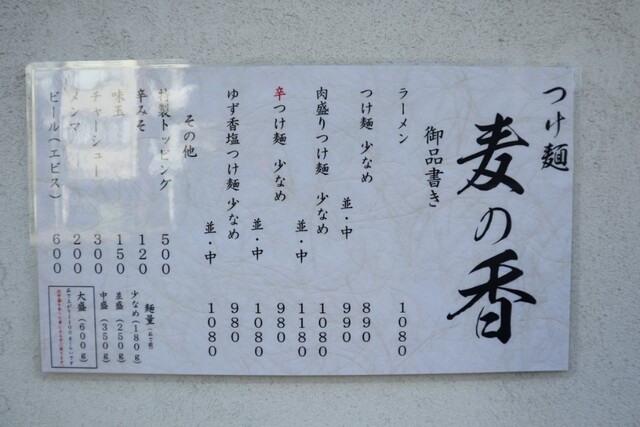 つけ麺
麦の香
御品書き
ラーメン 1080
つけ麺 少なめ 890
並・中 990
肉盛りつけ麺 少なめ 1080
並・中 1180
辛つけ麺 少なめ 980
並・中 1080
ゆず香塩つけ麺 少なめ 980
並・中 1080
その他
特製トッピング 500
辛みそ 120
味玉 150
チャーシュー 300
メンマ 200
ビール(エビス) 600
麺量
少なめ(180g)
並盛(250g)
中盛(350g)
大盛(600g)